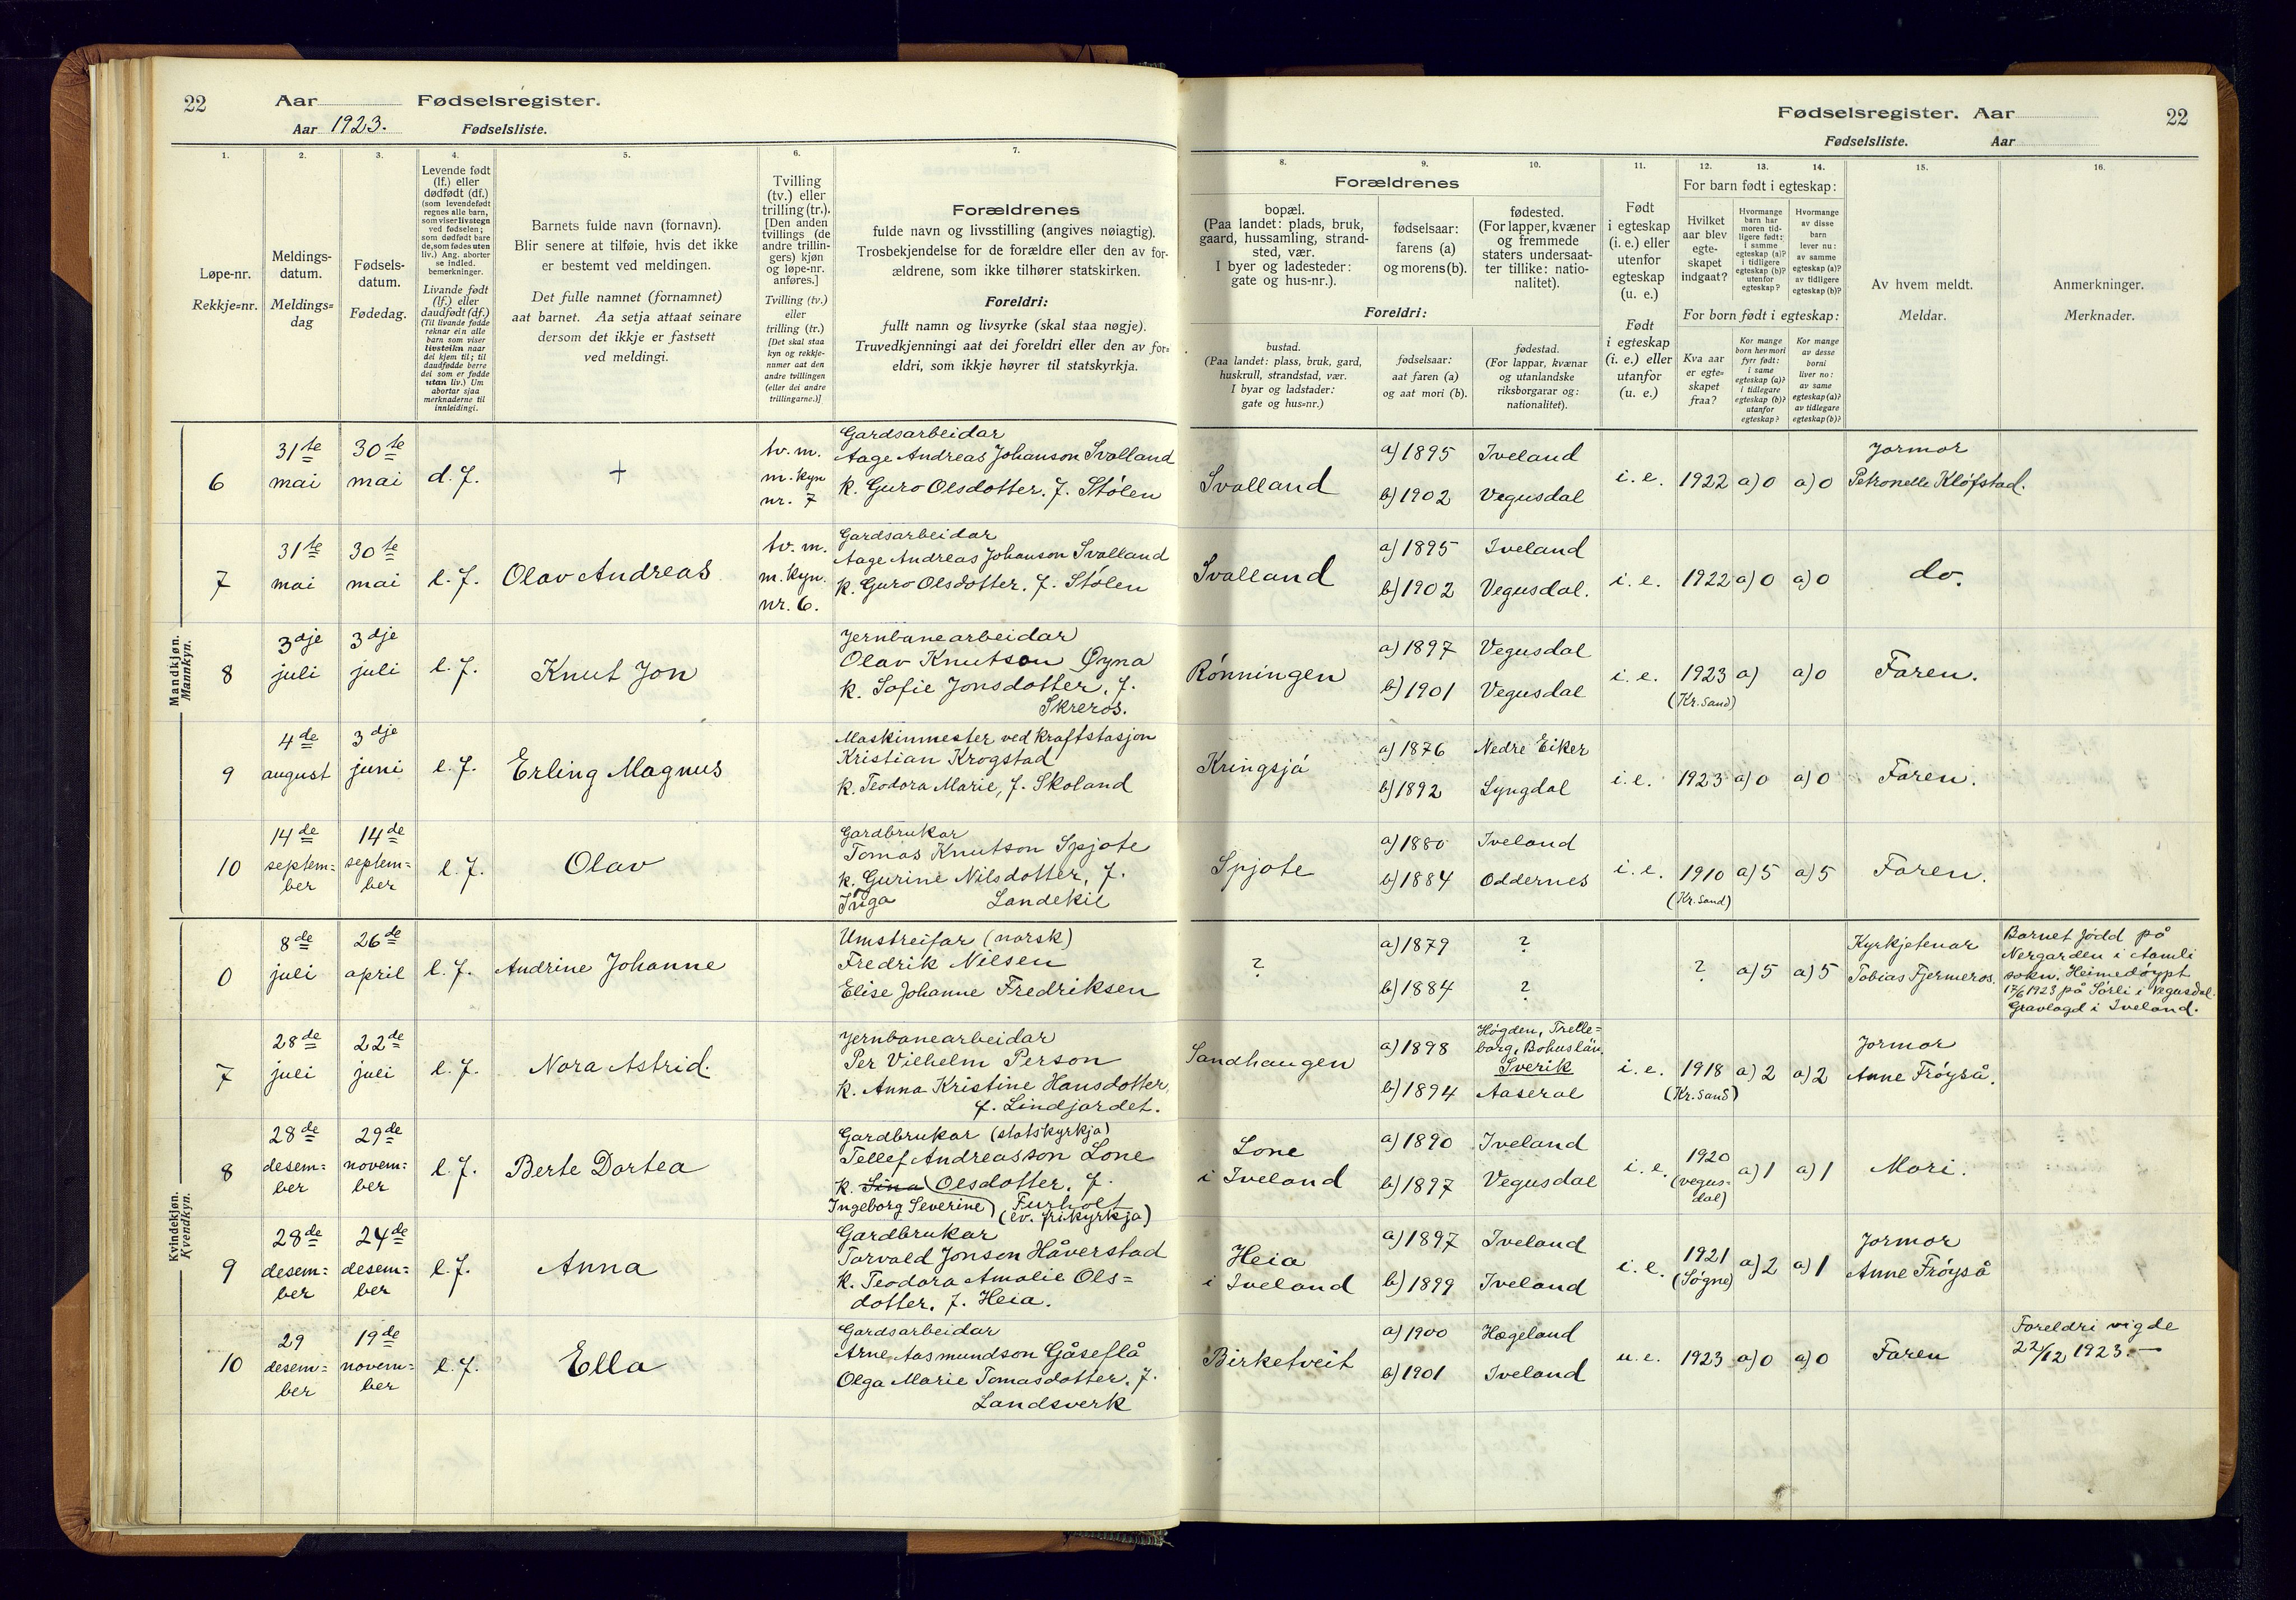 22 Aar Fødselsregister.
Aar 1923. Fødselsliste.
Fødselsregister. Aar 22
Fødselsliste. Aar
1. 2. 3. 4. 5. 6. 7.
8. 9. 10. 11. 12. 13. 14. 15. 16.
Løpe-nr.
Rekkje=nr.
Meldings-
datum.
Meldings=
dag
Fødsels-
datum.
Fødedag.
Levende født
(lf.) eller
dødfødt (df.)
(som levendefødt
regnes alle barn,
som viser livstegn
ved fødselen;
som dødfødt bare
de, som fødes uten
liv.) Ang. aborter
se indled.
bemerkninger.
Livande født
(lf.) eller
daudfødt (df.)
(Til livande fødde
reknar ein alle
barn som viser
livsteikn naar
dei kjem til; til
daudfødde berre
dei som er fødde
utan liv.) Um
abortar sjaa
merknaderne til
innleidingi.
Barnets fulde navn (fornavn).
Blir senere at tilføie, hvis det ikke
er bestemt ved meldingen.
Det fulle namnet (fornamnet)
aat barnet. Aa setja attaat seinare
dersom det ikkje er fastsett
ved meldingi.
Tvilling
(tv.) eller
trilling (tr.).
[Den anden
tvillings (de
andre trillin-
gers) kjøn
og løpe-nr.
anføres.]
Tvilling (tv.)
eller
trilling (tr.)
[Det skal staa
kyn og rekkje-
numer aat den
andre tvillingen
(eller dei andre
trillingarne.)]
Forældrenes
fulde navn og livsstilling (angives nøiagtig).
Trosbekjendelse for de forældre eller den av for-
ældrene, som ikke tilhører statskirken.
Foreldri:
fullt namn og livsyrke (skal staa nøgje).
Truvedkjenningi aat dei foreldri eller den av for=
eldri, som ikkje høyrer til statskyrkja.
Forældrenes
bopæl.
(Paa landet: plads, bruk,
gaard, hussamling, strand-
sted, vær.
I byer og ladesteder:
gate og hus-nr.).
fødselsaar:
farens (a)
og morens (b).
fødested.
(For lapper, kvæner
og fremmede
staters undersaat-
ter tillike: natio-
nalitet).
Foreldri:
bustad.
(Paa landet: plass, bruk, gard,
huskrull, strandstad, vær.
I byar og ladstader:
gate og hus=nr.)
fødselsaar:
aat faren (a)
og aat mori (b).
fødestad.
(For lappar, kvænar
og utanlandske
riksborgarar og:
nationalitet).
Født
i egteskap
(i. e.) eller
utenfor
egteskap
(u. e.)
Født
i egteskap
(i. e.) eller
utanfor
(u. e.)
For barn født i egteskap:
Hvilket
aar blev
egte-
skapet
indgaat?
Hvormange
barn har
moren tid-
ligere født:
i samme
egteskap (a)?
i tidligere
egteskap (b)?
utenfor
egteskap?
Hvormange
av disse
barn
lever nu:
av samme
egteskap (a)?
av tidligere
egteskap (b)?
For born født i egteskap:
Kva aar
er egte=
skapet
fraa?
Kor mange
born hev mori
fyrr født:
i same
egteskap (a)?
i tidlegare
egteskap (b)?
utanfor
egteskap?
Kor mange
av desse
borni
liver no:
av same
egteskap (a)?
av tidlegare
egteskap (b)?
Av hvem meldt.
Meldar.
Anmerkninger.
Merknader.
Mandkjøn.
Mannkyn.
6 31te mai 30te mai d. f. +
tv. m.
m. kyn
nr. 7
Gardsarbeidar
Aage Andreas Johanson Svalland
k. Guro Olsdotter. f. Stólen
Svalland a) 1895 Iveland
b) 1902 Vegusdal
i. e. 1922 a) 0 a) 0
Jormor
Petronelle Kløfstad.
7 31te mai 30te mai l. f. Olav Andreas
tv. m.
m. kyn.
nr. 6.
Gardsarbeidar
Aage Andreas Johanson Svalland
k. Guro Olsdotter. f. Stólen
Svalland a) 1895 Iveland
b) 1902 Vegusdal.
i. e. 1922 a) 0 a) 0 do.
8 3dje juli 3dje juli l. f. Knut Jon
Jernbanearbeidar
Olav Knutson Øyna
k. Sofie Jonsdotter, f.
Skreros.
Rónningen a) 1897 Vegusdal
b) 1901 Vegusdal
i. e. 1923 a) a) 0 Faren.
(Kr. sand)
9 4de august 3dje juni l. f. Erling Magnus
Maskinmester ved kraftstasjon
Kristian Krogstad
k. Teodora Marie, f. Skoland
Kringsjå a) 1876 Nedre Eiker
b) 1892 Lyngdal
i. e. 1923 a) 0 a) 0 Faren.
10 14de septem=ber 14de septem=ber l. f. Olav
Gardbrukar
Tomas Knutson Spjote
k. Gurine Nilsdotter, f.
Inga Landekil
Spjote a) 1880 Iveland
b) 1884 Oddernes
i. e. 1910 a) 5 a) 5 Faren.
(Kr. sand)
Kvindekjøn.
Kvendkyn.
0 8de juli 26de april l. f. Andrine Johanne
Umstreifar (norsk)
Fredrik Nilsen
Elise Johanne Fredriksen
? a) 1879 ?
b) 1884 ?
? a) 5 a) 5
Kyrkjetenar
Tobias Fjermeros.
Barnet fødd på
Nergarden i Aamli
sokn. Heimedøypt
17/6 1923 på Sørli i Vegusdal.
Gravlagd i Iveland.
7 28de juli 22de juli l. f. Nora Astrid.
Jernbanearbeidar
Per Vilhelm Person
k. Anna Kristine Hansdotter,
f. Lindjordet.
Sandhaugen a) 1898 Högden, Trelle=
borg, Bohuslän.
Sverik
b) 1894 Aaseral
i. e. 1918 a) 2 a) 2
(Kr. sand)
Jormor
Anne Fróyså.
8 28de desem=ber 29de novem=ber l. f. Berte Dortea
Gardbrukar (statskyrkja)
Tellef Andreasson Lone
k. Sina Olsdotter, f.
Ingeborg Severine) Furholt
(ev. frikyrkja)
Lone
i Iveland
a) 1890 Iveland
b) 1897 Vegusdal
i. e. 1920 a) 1 a) 1 Mori.
(vegus=
dal)
9 28de desem=ber 24de desem=ber l. f. Anna
Gardbrukar
Torvald Jonson Håverstad
k. Teodora Amalie Ols=
dotter. f. Heia.
Heia
i Iveland
a) 1897 Iveland
b) 1899 Iveland
i. e. 1921 a) 2 a) 1
(Søgne)
Jormor
Anne Fróyså
10 29 desem=ber 19de novem=ber l. f. Ella
Gardsarbeidar
Arne Aasmundson Gåseflå
Olga Marie Tomasdotter. f.
Landsverk
Birketveit a) 1900 Hægeland
b) 1901 Iveland
u. e. 1923 a) 0 a) 0 Faren
Foreldri vigde
22/12 1923.—